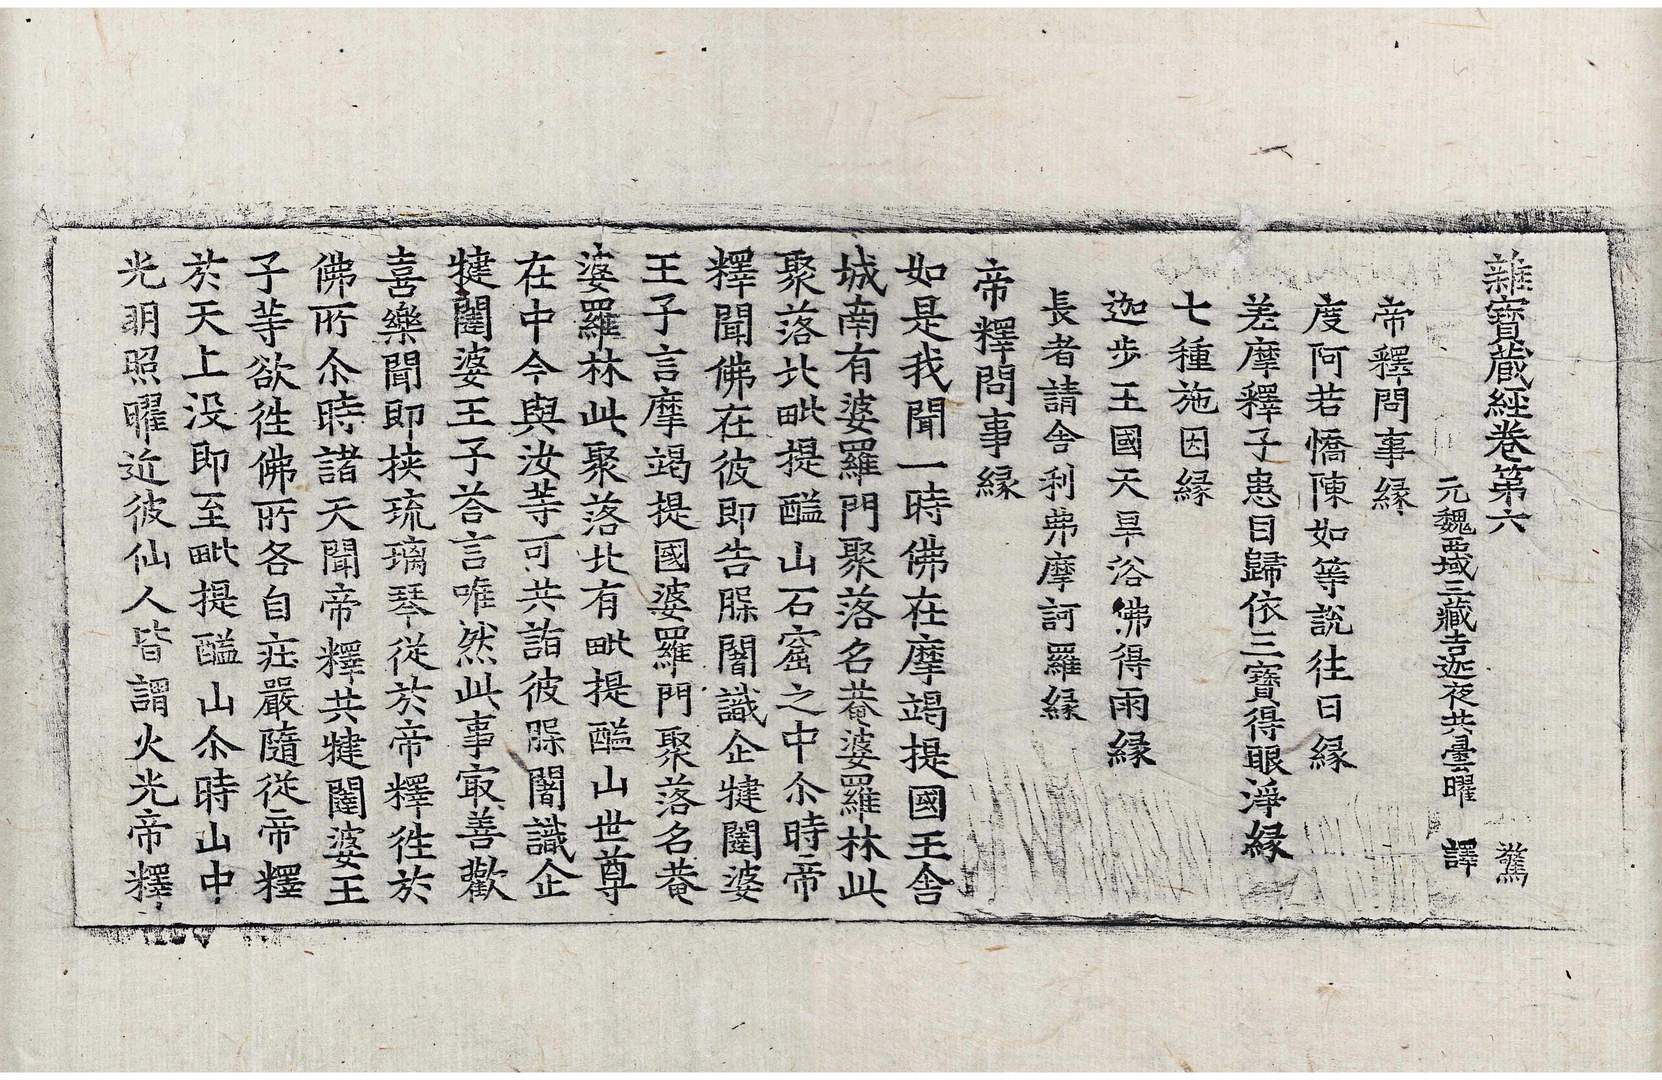 雜寶藏經卷第六 驚
元魏西域三藏吉迦夜共曇曜 譯
帝釋問事緣
度阿若憍陳如等說往日緣
差摩釋子患目歸依三寶得眼淨緣
七種施因緣
迦步王國天旱浴佛得雨緣
長者請舍利弗摩訶羅緣
帝釋問事緣
如是我聞一時佛在摩竭提國王舍
城南有婆羅門聚落名菴婆羅林此
聚落北毗提醯山石窟之中尒時帝
釋聞佛在彼即告䏶闍識企犍闥婆
王子言摩竭提國婆羅門聚落名菴
婆羅林此聚落北有毗提醯山世尊
在中今與汝等可共詣彼䏶闍識企
犍闥婆王子荅言唯然此事㝡善歡
喜樂聞即挾琉璃琴從於帝釋徃於
佛所尒時諸天聞帝釋共犍闥婆王
子等欲徃佛所各自莊嚴隨從帝釋
於天上没即至毗提醯山尒時山中
光明照曜近彼仙人皆謂火光帝釋